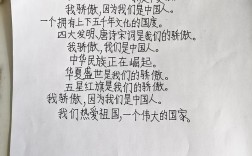 我骄傲,因为我们是中国人。
一个拥有上下五千年文化的国度。
四大发明、唐诗宋词是我们的骄傲。
我骄傲,我们是中国人。
中华民族正在崛起。
华夏盛世是我们的骄傲。
五星红旗是我们的骄傲。
我骄傲,因为我们是中国人。
我们热爱祖国,一个伟大的国家。